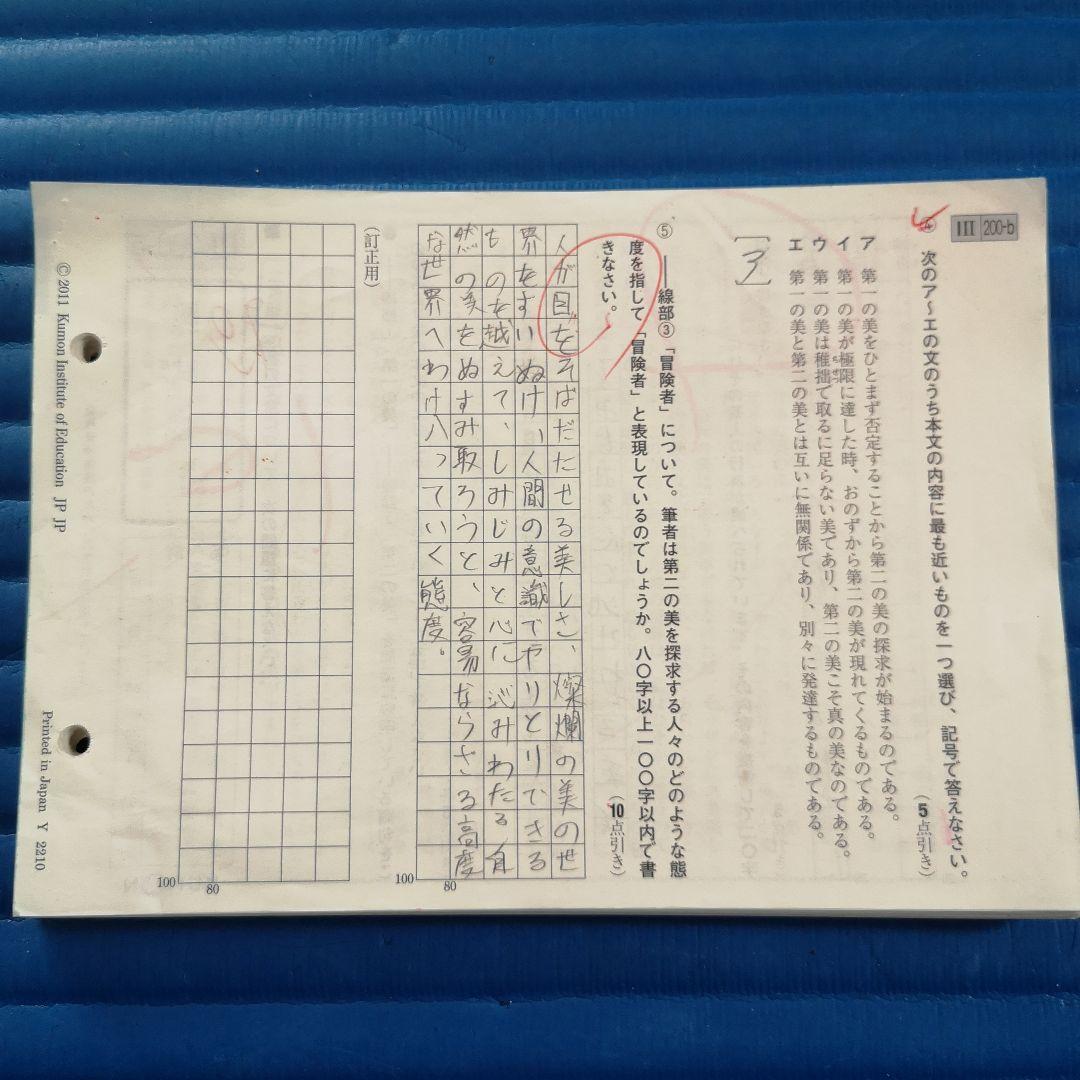 III 200-b
④ 次のア～エの文のうち本文の内容に最も近いものを一つ選び、記号で答えなさい。
(5点引き)
ア 第一の美をひとまず否定することから第二の美の探求が始まるのである。
イ 第一の美が極限に達した時、おのずから第二の美が現れてくるものである。
ウ 第一の美は稚拙で取るに足らない美であり、第二の美こそ真の美なのである。
ちせつ
エ 第一の美と第二の美とは互いに無関係であり、別々に発達するものである。
[ア]
⑤ ――線部③「冒険者」について。筆者は第二の美を探求する人々のどのような態
度を指して「冒険者」と表現しているのでしょうか。八〇字以上一〇〇字以内で書
きなさい。
(10点引き)
人が目をそばだたせる美しさ、燦爛の美の世
界をすいぬけ、人間の意識でやりとりできる
ものを越えて、しみじみと心に沁みわたる自
然の美をぬすみ取ろうと、容易ならざる高度
な世界へわけ入っていく態度。
80
100
(訂正用)
80
100
© 2011 Kumon Institute of Education JP JP
Printed in Japan Y 2210